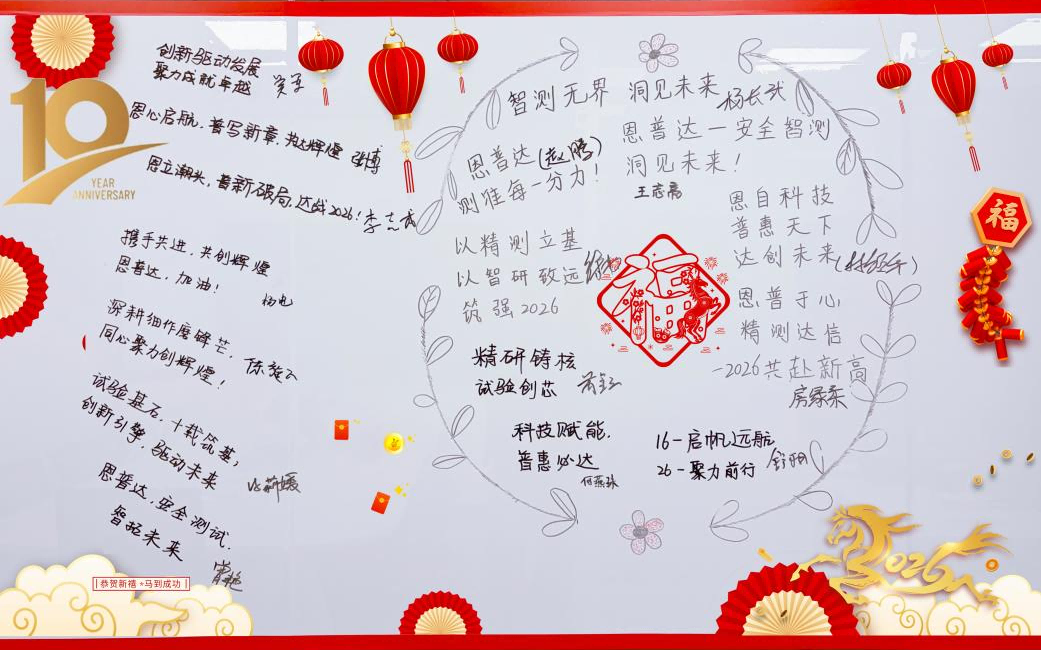 创新驱动发展
聚力成就卓越
10
YEAR
ANNIVERSARY
恩心启航，普写新章，共达辉煌 张博
恩立潮头，普新破局，达战2026！李志武
携手共进，共创辉煌
恩普达，加油！
杨屯
深耕细作磨锋芒，
同心聚力创辉煌！
陈
试验基石，十载筑基，
创新引擎，驱动未来
恩普达，安全测试.
智拓未来
常艳
恭贺新禧 马到成功
智测无界 洞见未来 杨长武
恩普达（赵鹏）
测准每一分力！
恩普达一安全智测
洞见未来！
王志高
以精测立基
以智研致远
筑强2026
恩自科技
普惠天下
达创未来
恩普于心
精测达信
-2026共赴新高
房绿柔
精研铸核
试验创芯
科技赋能.
普惠必达
何燕珠
16-启帆远航
26-聚力前行
福
2026